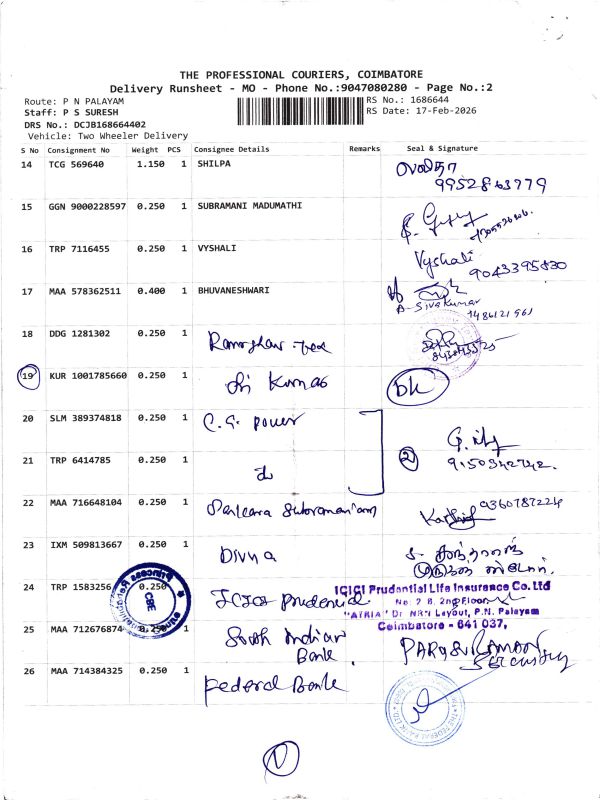 THE PROFESSIONAL COURIERS, COIMBATORE
Delivery Runsheet - MO - Phone No.:9047080280 - Page No.:2
Route: P N PALAYAM
RS No.: 1686644
Staff: P S SURESH
RS Date: 17-Feb-2026
DRS No.: DCJB168664402
Vehicle: Two Wheeler Delivery
S No Consignment No Weight PCS Consignee Details Remarks Seal & Signature
14 TCG 569640 1.150 1 SHILPA
9952863779
15 GGN 9000228597 0.250 1 SUBRAMANI MADUMATHI
16 TRP 7116455 0.250 1 VYSHALI Vyshali
9043395830
17 MAA 578362511 0.400 1 BHUVANESHWARI
A-Sivakumar
18 DDG 1281302 0.250 1
19 KUR 1001785660 0.250 1 Sri Kumas
20 SLM 389374818 0.250 1 C.G. Power
21 TRP 6414785 0.250 1 2
9150342742.
22 MAA 716648104 0.250 1 Subramaniam Karthick 9360787224
23 IXM 509813667 0.250 1 Divya
24 TRP 1583256 0.250 ICICI
ICICI Prudential Life Insurance Co. Ltd
No. 2 B, 2nd Floor
"ATRIA" Dr. NRN Layout, P.N. Palayam
Coimbatore - 641 037.
CBE
25 MAA 712676874 0.250 1 South Indian
Bank
PARASURAMAN
Security
26 MAA 714384325 0.250 1 Federal Bank
THE FEDERAL BANK LTD